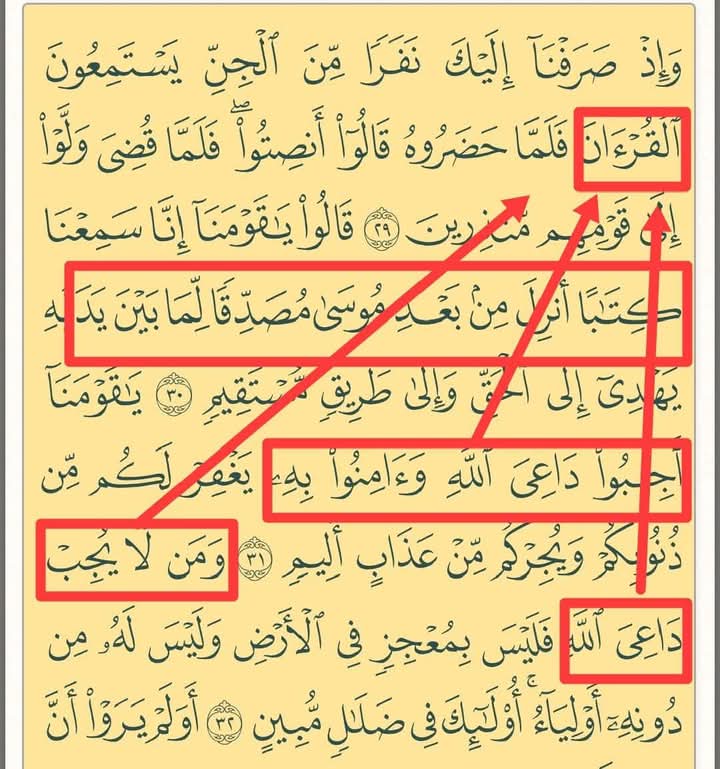 وَإِذْ صَرَفْنَآ إِلَيْكَ نَفَرًا مِّنَ ٱلْجِنِّ يَسْتَمِعُونَ
ٱلْقُرْءَانَ فَلَمَّا حَضَرُوهُ قَالُوٓا۟ أَنصِتُوا۟ ۖ فَلَمَّا قُضِىَ وَلَّوْا۟
إِلَىٰ قَوْمِهِم مُّنذِرِينَ ٢٩ قَالُوا۟ يَٰقَوْمَنَآ إِنَّا سَمِعْنَا
كِتَٰبًا أُنزِلَ مِنۢ بَعْدِ مُوسَىٰ مُصَدِّقًا لِّمَا بَيْنَ يَدَيْهِ
يَهْدِىٓ إِلَى ٱلْحَقِّ وَإِلَىٰ طَرِيقٍ مُّسْتَقِيمٍ ٣٠ يَٰقَوْمَنَآ
أَجِيبُوا۟ دَاعِىَ ٱللَّهِ وَءَامِنُوا۟ بِهِۦ يَغْفِرْ لَكُم مِّن
ذُنُوبِكُمْ وَيُجِرْكُم مِّنْ عَذَابٍ أَلِيمٍ ٣١ وَمَن لَّا يُجِبْ
دَاعِىَ ٱللَّهِ فَلَيْسَ بِمُعْجِزٍ فِى ٱلْأَرْضِ وَلَيْسَ لَهُۥ مِن
دُونِهِۦٓ أَوْلِيَآءُ ۚ أُو۟لَٰٓئِكَ فِى ضَلَٰلٍ مُّبِينٍ ٣٢ أَوَلَمْ يَرَوْا۟ أَنَّ